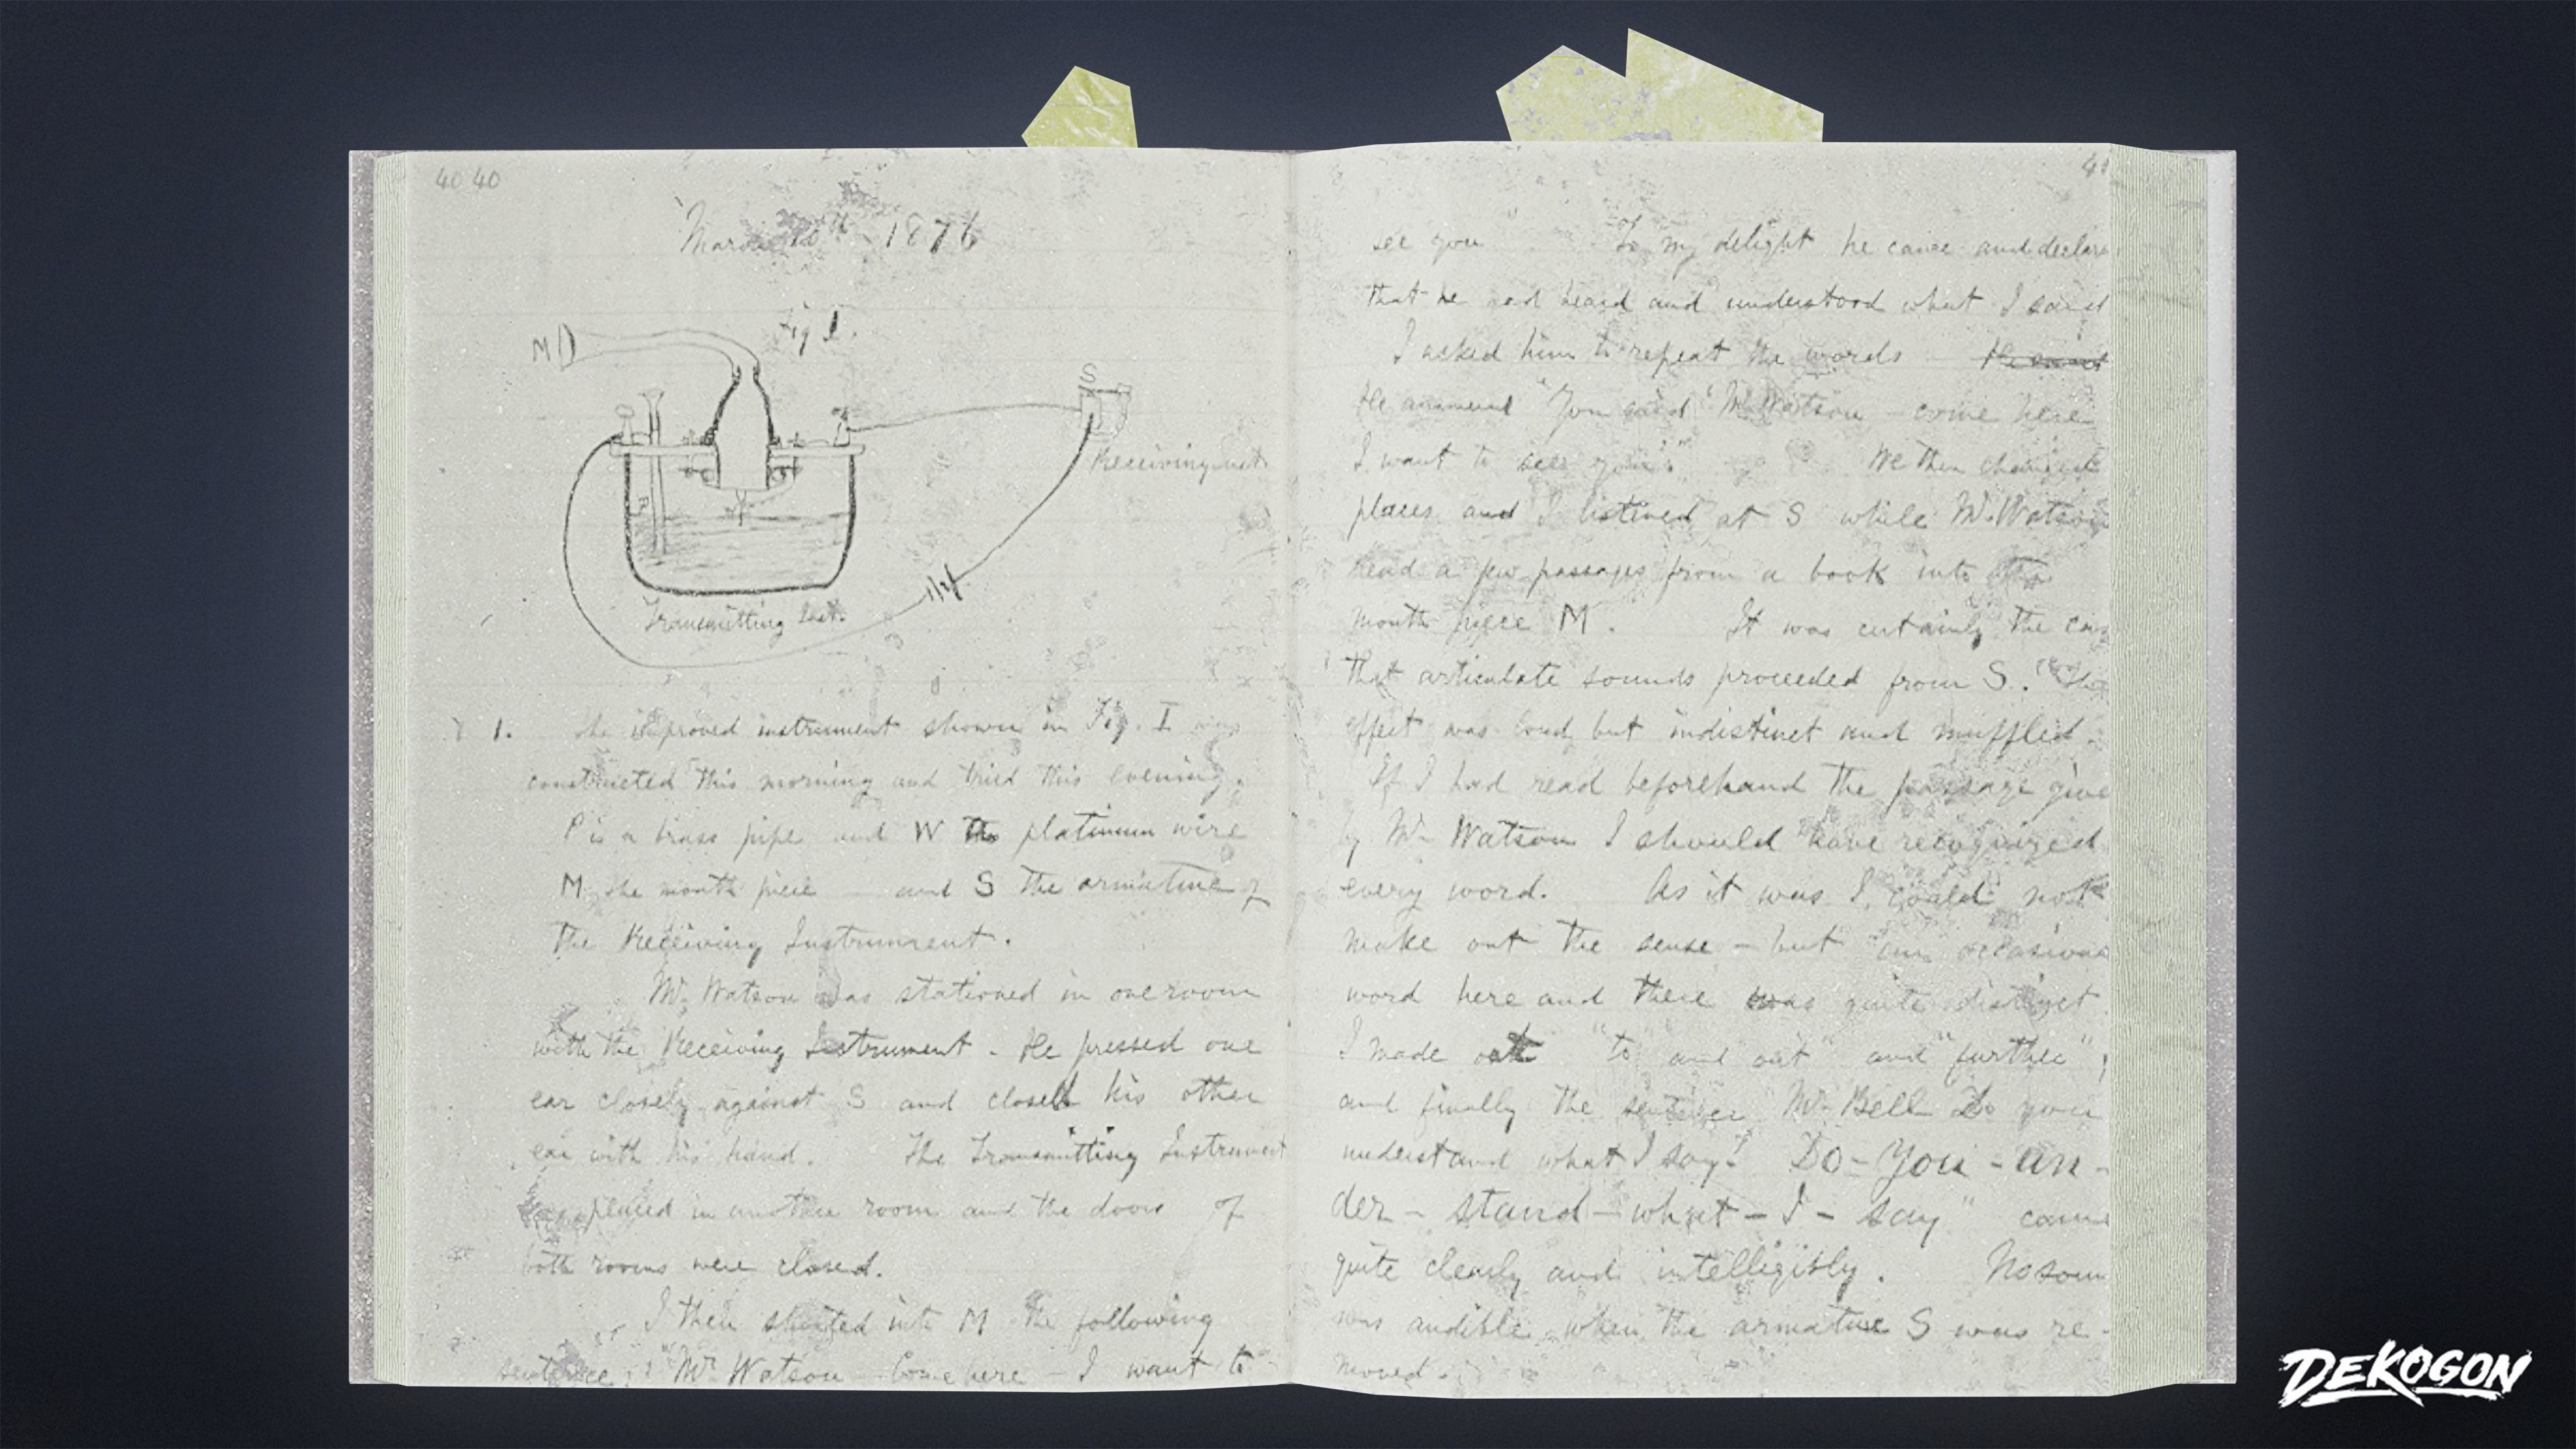 40 40
March 10th 1876
Fig 1.
M
S
Receiving Inst.
P
Transmitting Inst.
1. The improved instrument shown in Fig. I was
constructed this morning and tried this evening.
P is a brass pipe and W the platinum wire
M the mouth piece — and S the armature of
the Receiving Instrument.
Mr. Watson was stationed in one room
with the Receiving Instrument. He pressed one
ear closely against S and closed his other
ear with his hand. The Transmitting Instrument
was placed in another room and the doors of
both rooms were closed.
I then shouted into M the following
sentence: "Mr Watson — Come here — I want to
41
see you". To my delight he came and declare
that he had heard and understood what I said
I asked him to repeat the words
He answered "You said 'Mr Watson — come here
I want to see you'." We then changed
places and I listened at S while Mr. Watson
read a few passages from a book into the
mouth piece M. It was certainly the case
that articulate sounds proceeded from S. The
effect was loud but indistinct and muffled.
If I had read beforehand the passage give
by Mr Watson I should have recognized
every word. As it was I could not
make out the sense — but an occasiona
word here and there was quite distinct.
I made out "to" and "out" and "further";
and finally the sentence "Mr Bell Do you
understand what I say? Do - You - un -
der - stand - what - I - say" came
quite clearly and intelligibly. No soun
was audible when the armature S was re-
moved.
DEKOGON